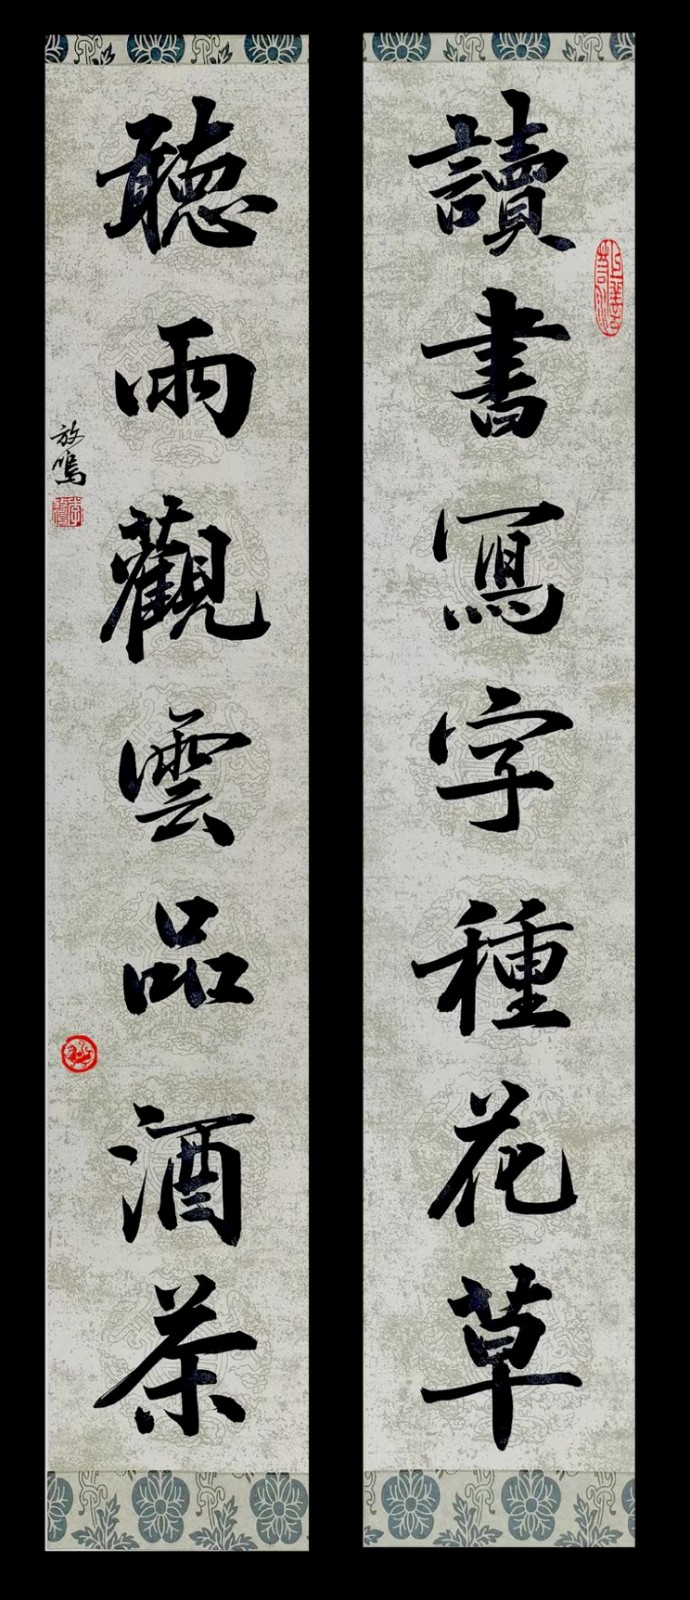 讀書寫字種花草
聽雨觀雲品酒茶
放鳴